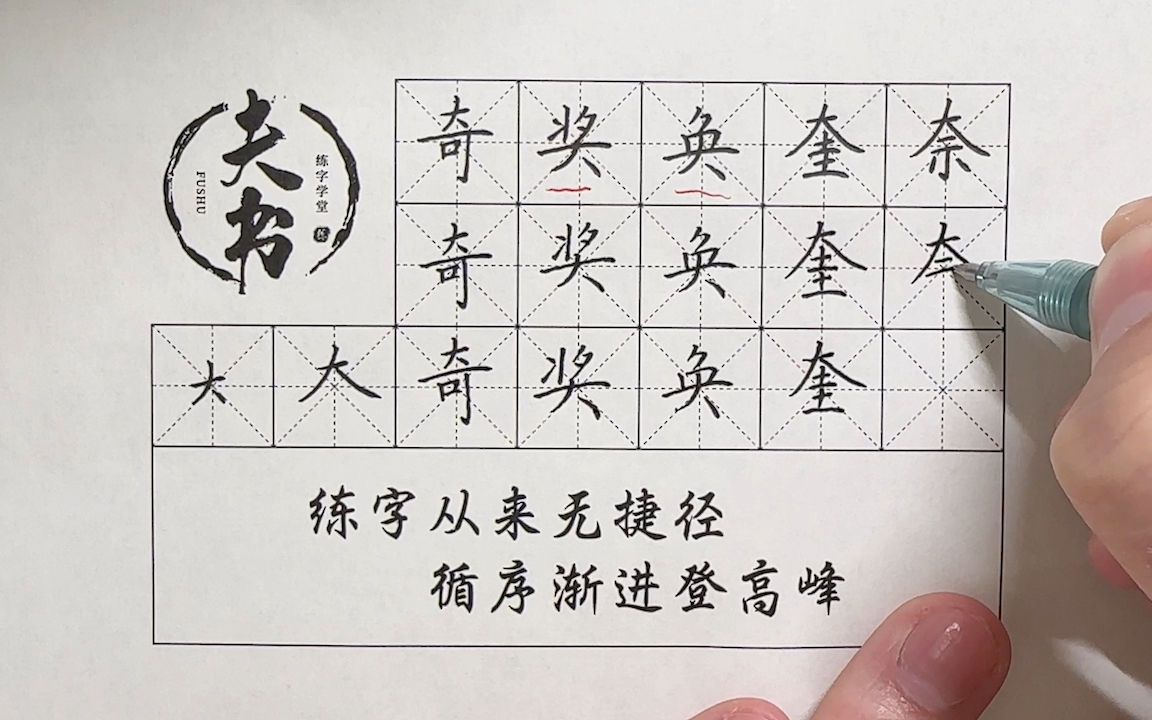 夫书
练字学堂
FUSHU
奇奖奂奎奈
奇奖奂奎
大大奇奖奂奎
练字从来无捷径
循序渐进登高峰